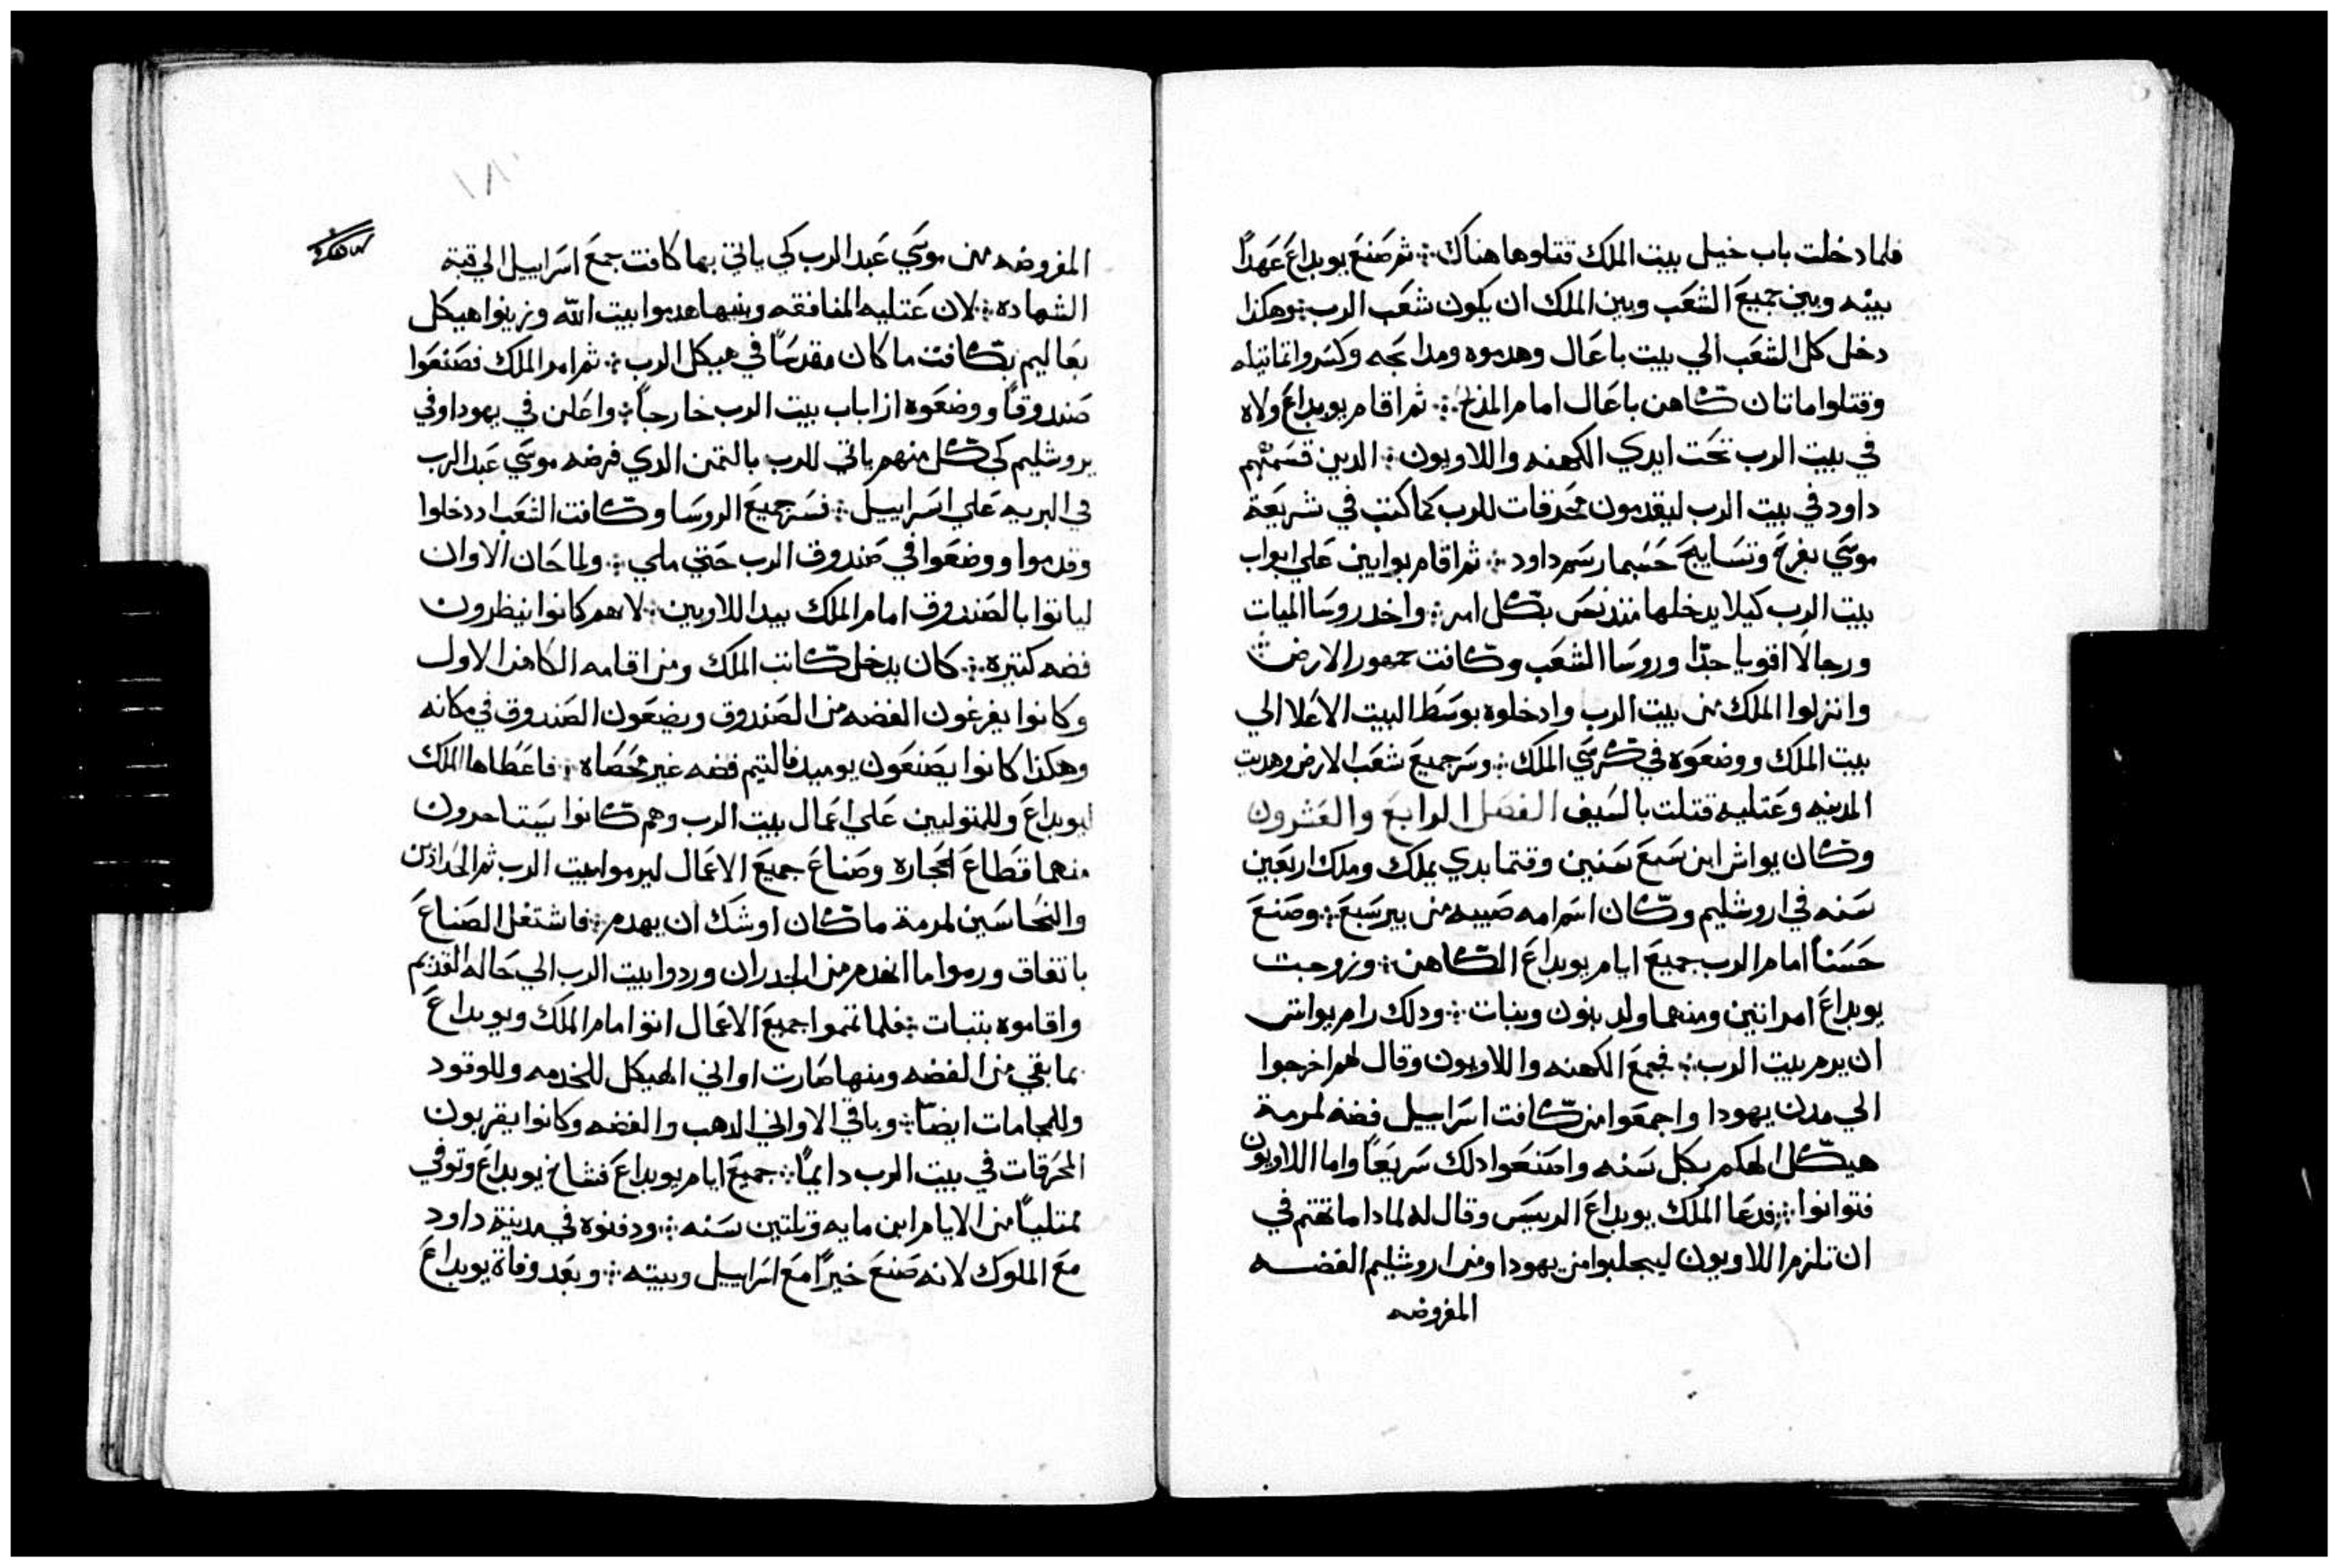 فلما دخلت باب خيل بيت الملك قتلوها هناك ܀ ثم صنع يويداع عهداً
بينه وبين جميع الشعب وبين الملك ان يكون شعب الرب ܀ وهكذا
دخل كل الشعب الي بيت باعال وهدموه ومدابحه وكسروا تماتيله
وقتلوا ماتان كاهن باعال امام المذبح ܀ ثم اقام يويداع ولاه
في بيت الرب تحت ايدي الكهنه واللاويون ܀ الدين قسمتهم
داود في بيت الرب ليقدمون محرقات للرب كما كتب في شريعة
موسي بفرح وتسابيح حسبما رسم داود ܀ ثم اقام بوابين علي ابواب
بيت الرب كيلا يدخلها متدنس بكل امر ܀ واخد روسا الميات
ورجالا اقويا جدّا وروسا الشعب وكافت جمهور الارض ܀
وانزلوا الملك من بيت الرب وادخلوه بوسط البيت الاعلا الي
بيت الملك ووضعوه في كرسي الملك ܀ وسر جميع شعب الارض وهديت
المدينه وعتليه قتلت بالسيف الفصل الرابع والعشرون
وكان يواش ابن سبع سنين وقتما بدي يملك وملك اربعين
سنه في اروشليم وكان اسم امه صبيه من بيرسبع ܀ وصنع
حسناً امام الرب جميع ايام يويداع الكاهن ܀ وزوجت
يويداع امراتين ومنهما ولد بنون وبنات ܀ ودلك رام يواش
ان يرم بيت الرب ܀ فجمع الكهنه واللاويون وقال لهم اخرجوا
الي مدن يهودا واجمعوا من كافت اسراييل فضه لمرمة
هيكل الهكم بكل سنه واصنعوا دلك سريعاً واما اللاويون
فتوانوا ܀ فدعا الملك يويداع الرييس وقال له لمادا ما تهتم في
ان تلزم اللاويون ليجلبوا من يهودا ومن اروشليم الفضه
المفروضه
المفروضه من موسي عبد الرب كي ياتي بها كافت جمع اسراييل الي قبة
الشهاده ܀ لان عتليه المنافقه وبنيها هدموا بيت الله وزينوا هيكل
بعاليم بكافت ما كان مقدساً في هيكل الرب ܀ ثم امر الملك فصنعوا
صندوقاً ووضعوه ازا باب بيت الرب خارجاً ܀ واعلن في يهودا وفي
يروشليم كي كل منهم ياتي للرب بالتمن الدي فرضه موسي عبد الرب
في البريه علي اسراييل ܀ فسر جميع الروسا وكافت الشعب اددخلوا
وقدموا ووضعوا في صندوق الرب حتي ملي ܀ ولما حان الاوان
لياتوا بالصندوق امام الملك بيد اللاويين ܀ لاهم كانوا ينظرون
فضه كتيره ܀ كان يدخل كاتب الملك ومن اقامه الكاهن الاول
وكانوا يفرغون الفضه من الصندوق ويضعون الصندوق في مكانه
وهكذا كانوا يصنعون يوميد فالتيم فضه غير محصاه ܀ فاعطاها الملك
ليويداع وللمتوليين علي اعمال بيت الرب وهم كانوا يستاجرون
منهما قطاع الحجاره وصناع جميع الاعمال ليرموا بيت الرب ثم الحدادين
والنحاسين لمرمة ما كان اوشك ان يهدم ܀ فاشتغل الصناع
باتفاق ورموا ما انهدم من الجدران وردوا بيت الرب الي حاله القديم
واقاموه بتبات ܀ فلما تمموا جميع الاعمال اتوا امام الملك ويويداع
بما بقي من الفضه ومنها صارت اواني الهيكل للخدمه وللوقود
وللجامات ايضاً ܀ وباقي الاواني الدهب والفضه وكانوا يقربون
المحرقات في بيت الرب دايماً ܀ جميع ايام يويداع فشاخ يويداع وتوفي
ممتلياً من الايام ابن مايه وتلتين سنه ܀ ودفنوه في مدينة داود
مع الملوك لانه صنع خيراً مع اسراييل وبيته ܀ وبعد وفاة يويداع